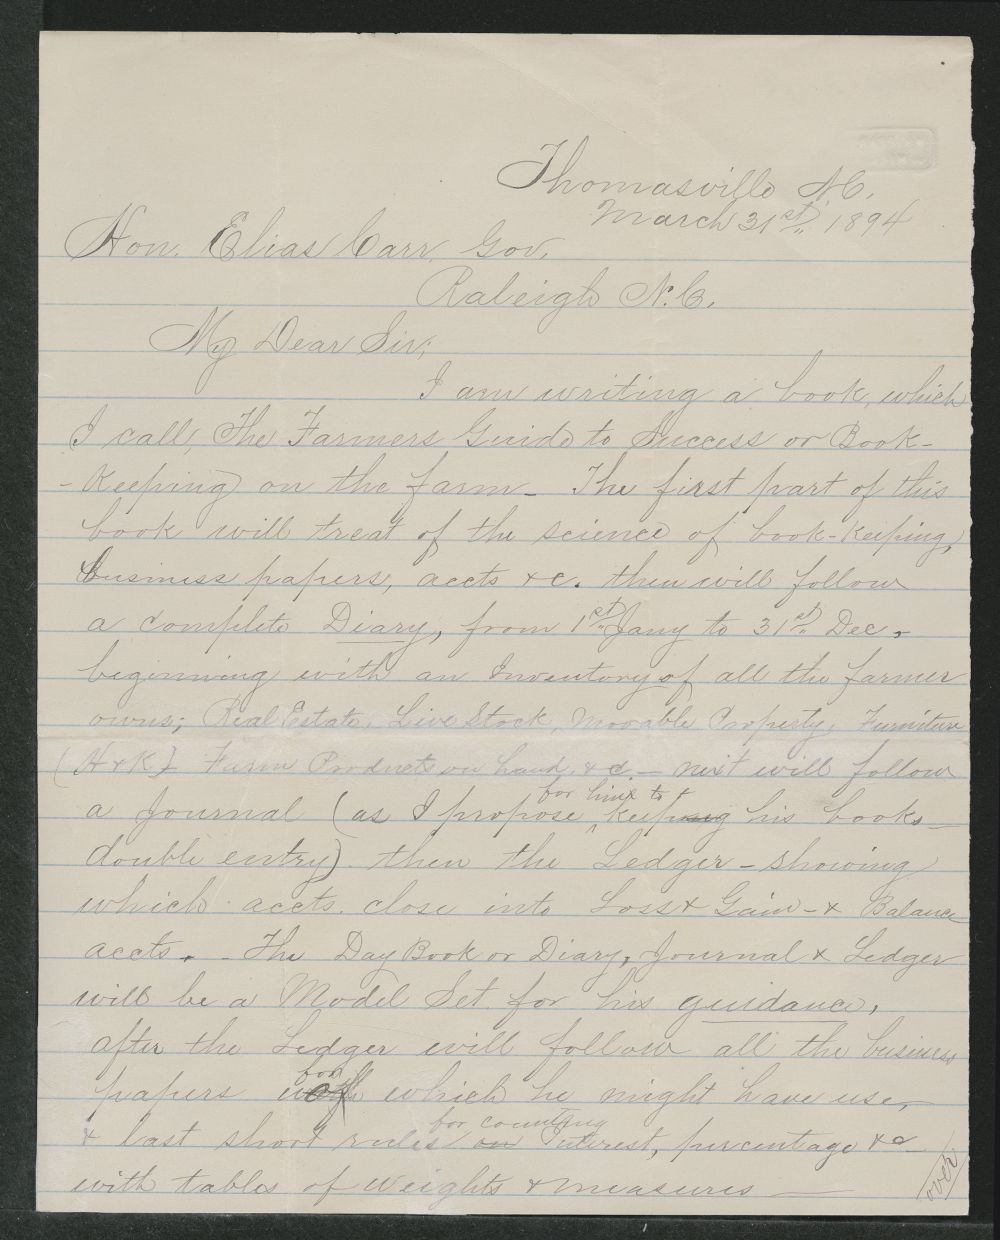 Thomasville N.C.
March 31st, 1894
Hon. Elias Carr, Gov.
Raleigh N.C.
My Dear Sir;
I am writing a book, which
I call, The Farmers Guide to Success or Book-
-Keeping on the farm - The first part of this
book will treat of the science of book-keeping,
business papers, accts &c. then will follow
a complete Diary, from 1st Jany to 31st Dec. -
beginning with an Inventory of all the farmer
owns; Real Estate, Live Stock, Movable Property, Furniture
(H & K) Farm Products on hand, &c - next will follow
a Journal (as I propose for him to keep his books -
double entry) then the Ledger - showing
which accts. close into Loss & Gain - & Balance
accts. - The Day Book or Diary, Journal & Ledger
will be a Model Set for his guidance,
after the Ledger will follow all the business
papers for which he might have use,
& last short rules for counting interest, percentage &c -
with tables of weights & measures -
over